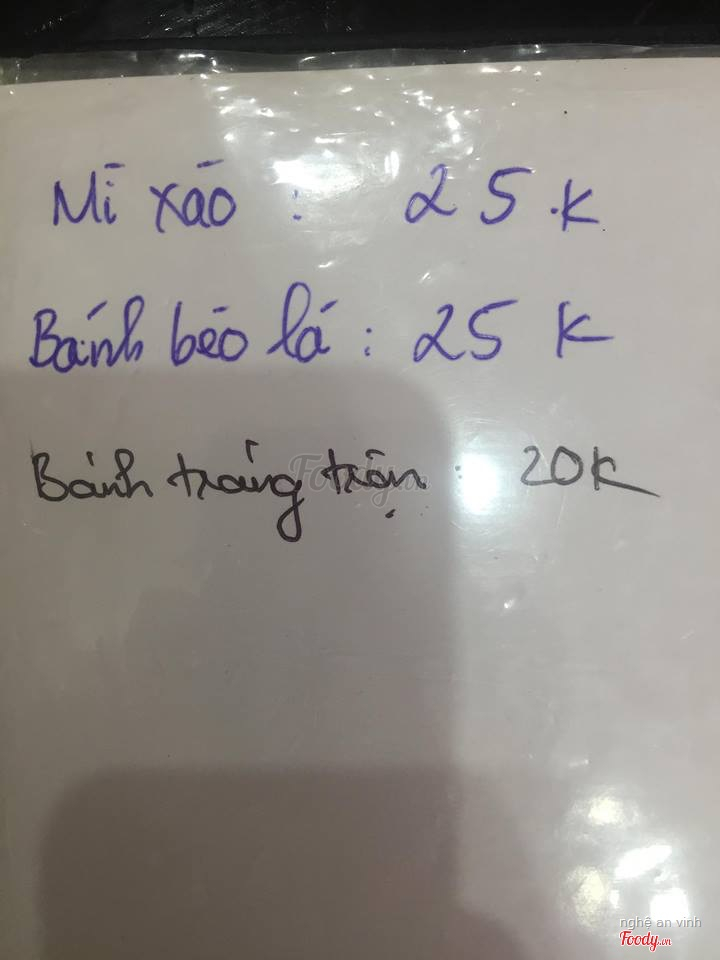 Mì xáo : 25.K
Bánh bèo lá : 25 K
Bánh tráng trộn : 20K
Foody.vn
nghệ an vinh
Foody.vn